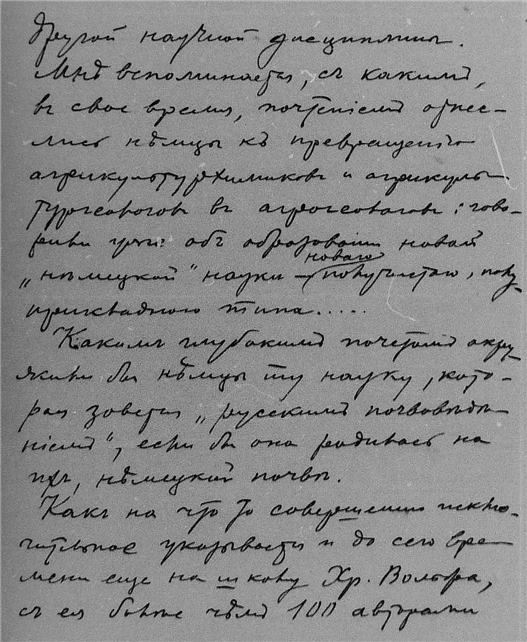 другой научной дисциплины.
Мнѣ вспоминается, съ какимъ,
въ свое время, почтенiемъ отнес-
лись нѣмцы къ превращенiю
агрикультурхимиковъ и агрикуль-
тургеологовъ въ агрогеологовъ: гово-
рили объ образованiи новой
„нѣмецкой“ науки – новаго получистаго, полу-
прикладного типа.....
Какимъ глубокимъ почетомъ окру-
жили бы нѣмцы ту науку, кото-
рая зовется „русскимъ почвовѣдѣ-
нiемъ“, если бы она родилась на
ихъ, нѣмецкой почвѣ.
Какъ на что то совершенно исклю-
чительное указываетъ и до сего вре-
мени еще на школу Хр. Вольфа,
съ ея болѣе чѣмъ 100 авторами